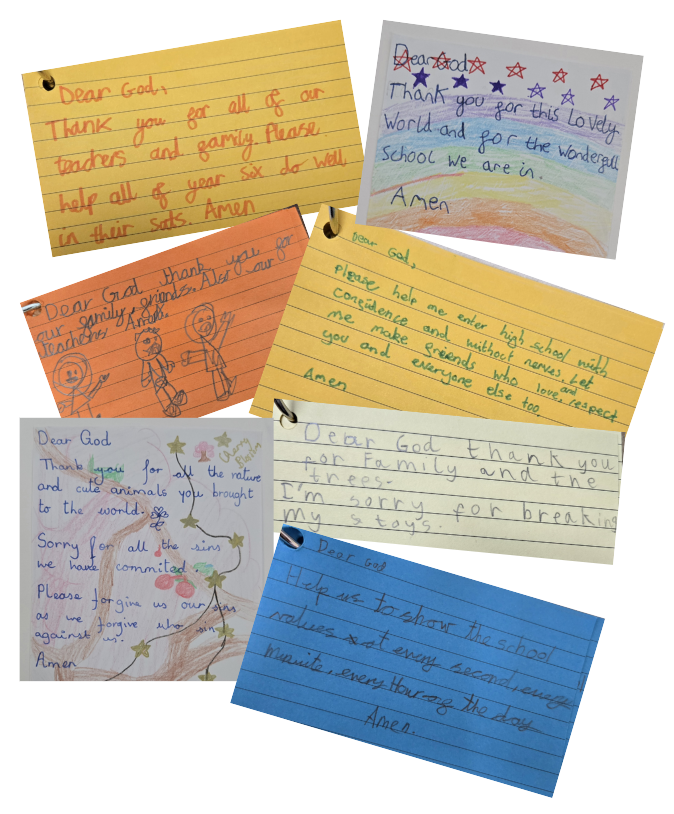 Dear God,
Thank you for all of our
teachers and family. Please
help all of year six do well
in their sats. Amen
Dear God,
Thank you for this Lovely
World and for the Wondergull
School we are in.
Amen
Dear God thank you for
our family, friends. Also our
teachers. Amen.
Dear God,
Please help me enter high school with
confidence and without nerves. Let
me make friends who love, and respect
you and everyone else too
Amen
Dear God
Thank you for all the nature
and cute animals you brought
to the world.
Cherry
Sorry for all the sins
we have commited.
Please forgive us our sins
as we forgive who sin
against us.
Amen
Dear God thank you
for Family and the
trees.
I'm sorry for breaking
my s toys.
Dear God
Help us to show the school
values at every second, every
Minuite, every Hour of the day
Amen.